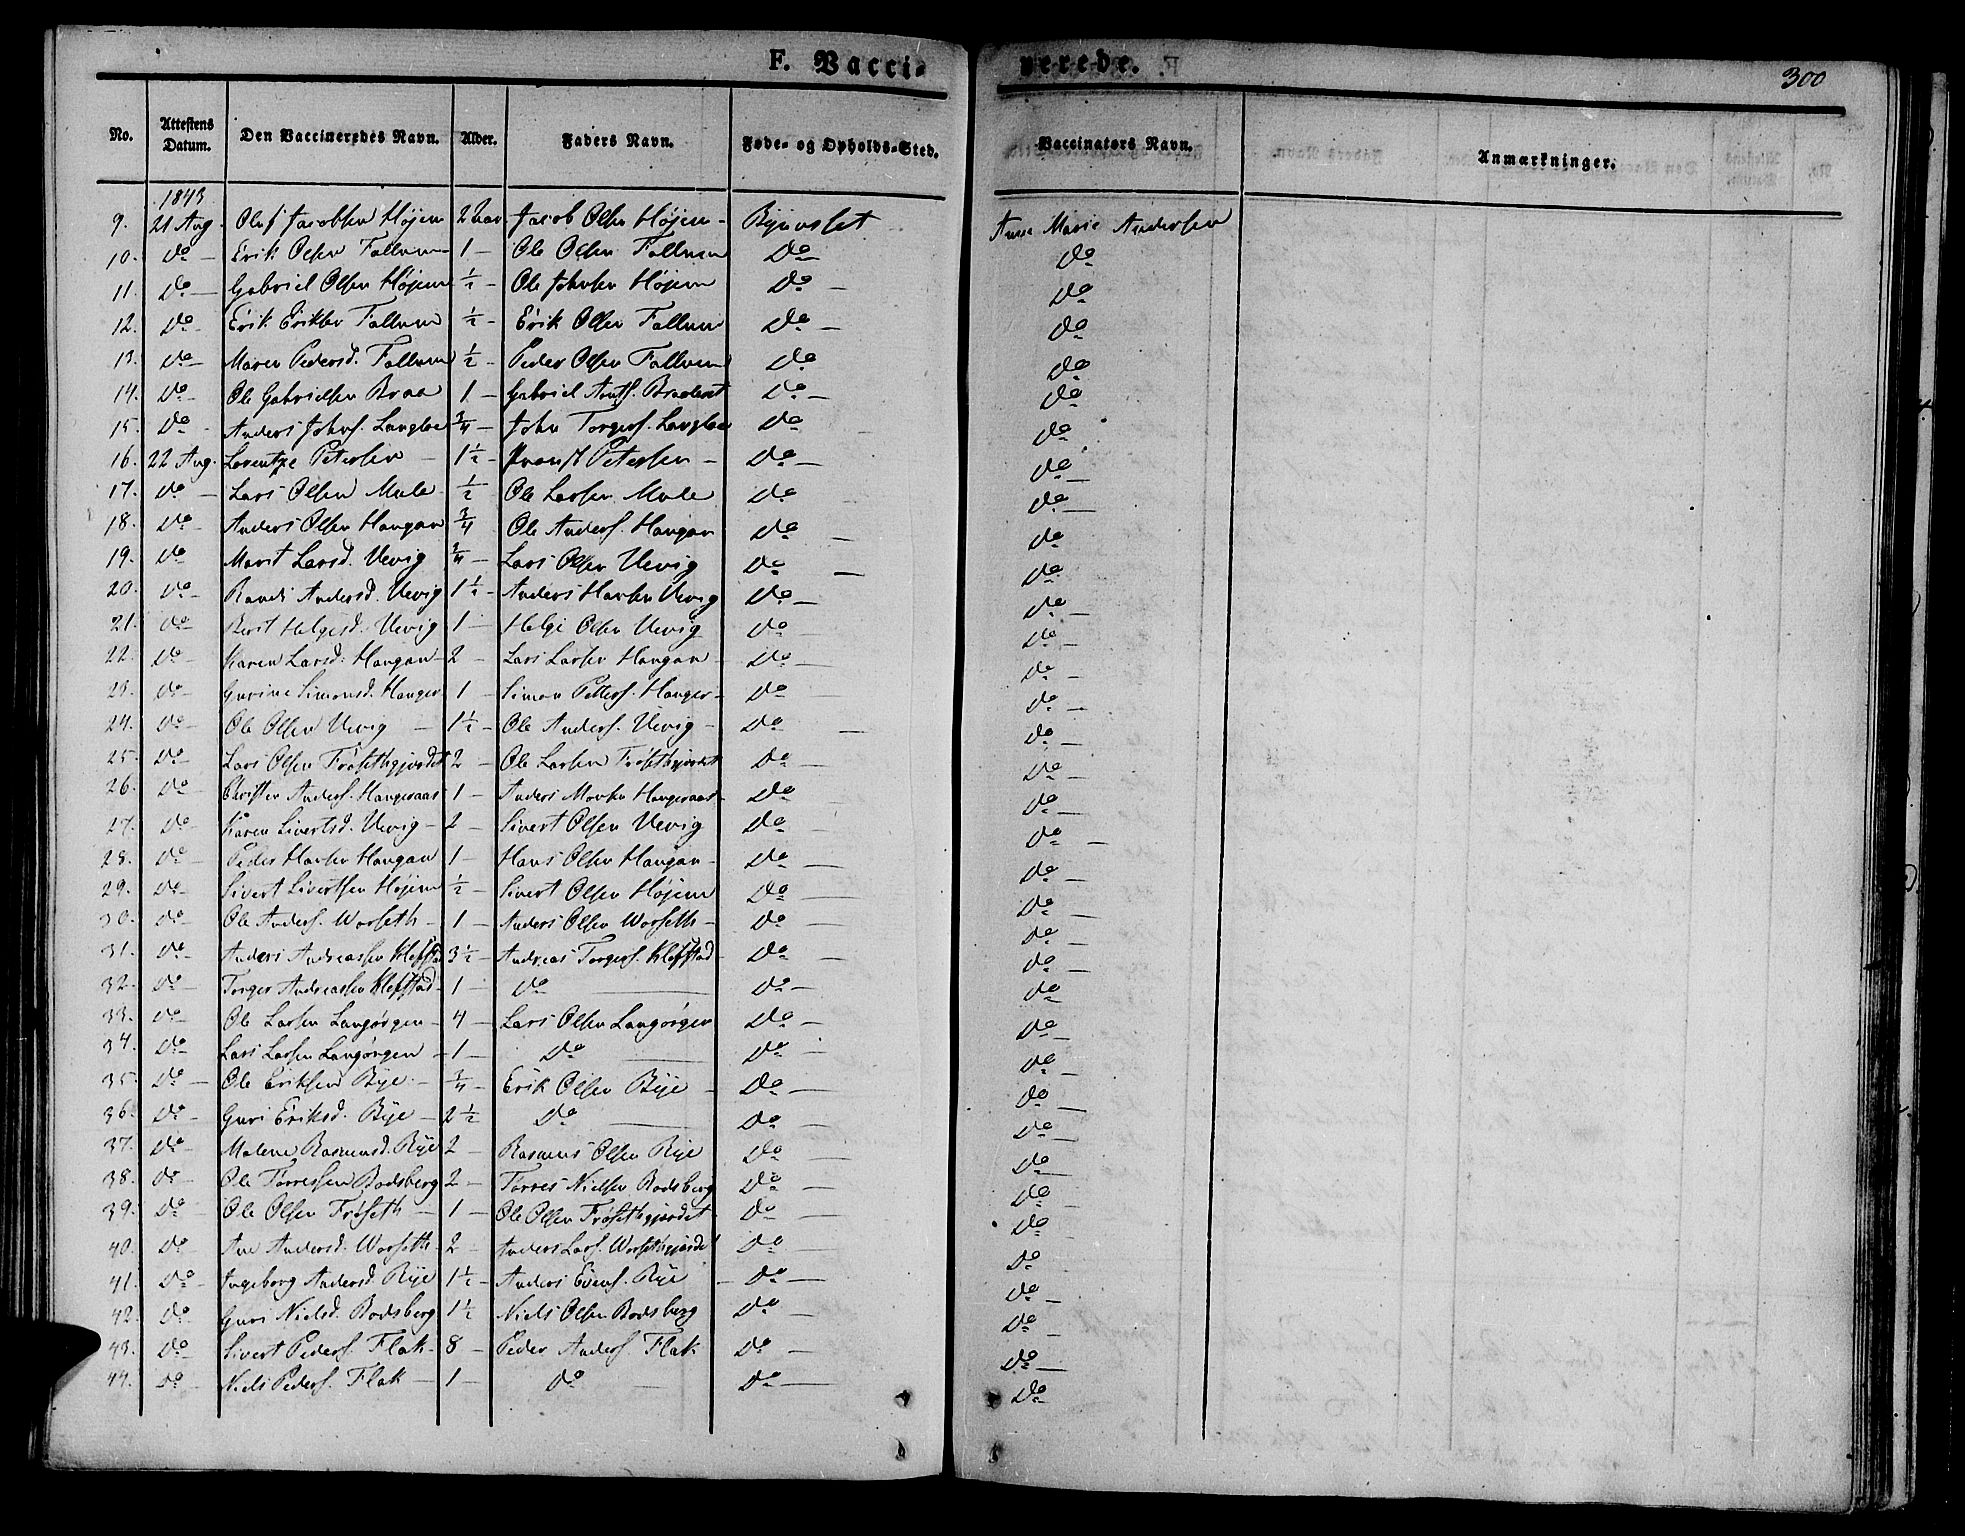 F. Vacci-
nerede.
300
No. Attestens Datum. Den Vaccineredes Navn. Alder. Faders Navn. Føde- og Opholds-Sted. Vaccinators Navn. Anmærkninger.
1843
9. 21 Aug. Oluf Jacobsen Højem 2 Aar Jacob Olsen Højem - Bynæsset Anne Marie Andersen
10. Do - Erik Olsen Fallum 1 - Ole Olsen Fallum Do Do
11. Do - Gabriel Olsen Højem ½ - Ole Johnsen Højem Do - Do
12. Do - Erik Eriksen Fallum ½ - Erik Olsen Fallum Do - Do
13. Do - Maren Pedersd. Fallum ½ - Peder Olsen Fallum Do Do
14. Do - Ole Gabrielsen Braa 1 - Gabriel Arntf. Do - Do
15. Do - Anders Johnf. Langloe ¾ - John Torgersf. Langloe Do - Do
16. 22 Aug. Lorentze Petersen - 1½ - Petersen - Do - Do
17. Do - Lars Olsen Mule - ½ Ole Larsen Mule Do - Do -
18. Do - Anders Olsen Hangan ¾ Ole Andersf. Hangan Do - Do
19. Do Marit Larsd. Uevig ¾ - Lars Olsen Uevig Do - Do
20. Do - Randi Andersd. Uevig 1½ - Anders Hansen Uevig Do - Do -
21. Do - Berit Helgesd. Uevig 1 - Helge Olsen Uevig Do - Do -
22. Do - Karen Larsd. Hangan - 2 - Lars Larsen Hangan - Do - Do -
23. Do - Gurine Simonsd. Hanger 1 - Simon Pettersf. Hanger - Do - Do -
24. Do - Ole Olsen Uevig - 1½ - Ole Andersf. Uevig - Do - Do -
25. Do - Lars Olsen Frösethgjerdet 2 - Ole Larsen Frösethgjerdet Do - Do -
26. Do - Andersf. Hangeraas 1 - Anders Hangeraas - Do - Do -
27. Do - Karen Sivertsd. Uevig - 2 - Sivert Olsen Uevig Do - Do -
28. Do - Peder Hansen Hangan 1 - Hans Olsen Hangan - Do - Do -
29. Do - Sivert Sivertsen Højem ½ - Sivert Olsen Højem Do - Do -
30. Do - Ole Andersf. Worseth - 1 - Anders Olsen Worseth - Do - Do -
31. Do - Anders Andreassen Klefstad 3½ - Andreas Torgersf. Klefstad - Do - Do -
32. Do - Torger Andreassen Klefstad - 1 - Do - Do - Do
33. Do - Ole Larsen Langørgen - 4 - Lars Olsen Langørgen Do - Do -
34. Do - Lars Larsen Langørgen - 1 - Do - Do - Do -
35. Do - Ole Eriksen Bye - ¾ - Erik Olsen Bye - Do - Do -
36. Do - Guri Eriksd. Bye - 2½ Do - Do - Do -
37. Do - Malene Rasmusd. Rye 2 - Rasmus Olsen Rye Do - Do -
38. Do - Ole Torressen Bodsberg 2 - Torres Nielsen Bodsberg Do - Do -
39. Do - Ole Olsen Fröseth - 1 - Ole Olsen Frösethgjerdet Do - Do -
40. Do - Ane Andersd. Worseth - 2 - Anders Larsf. Worsethgjerdet Do - Do
41. Do - Ingeborg Andersd. Rye 1½ - Anders Evensf. Rye - Do - Do -
42. Do - Guri Nielsd. Bodsberg 1½ Niels Olsen Bodsberg Do - Do -
43. Do - Sivert Pedersf. Flak - 8 - Peder Andersf. Flak Do - Do -
44. Do - Niels Pedersf. Flak - 1 - Do - Do - Do